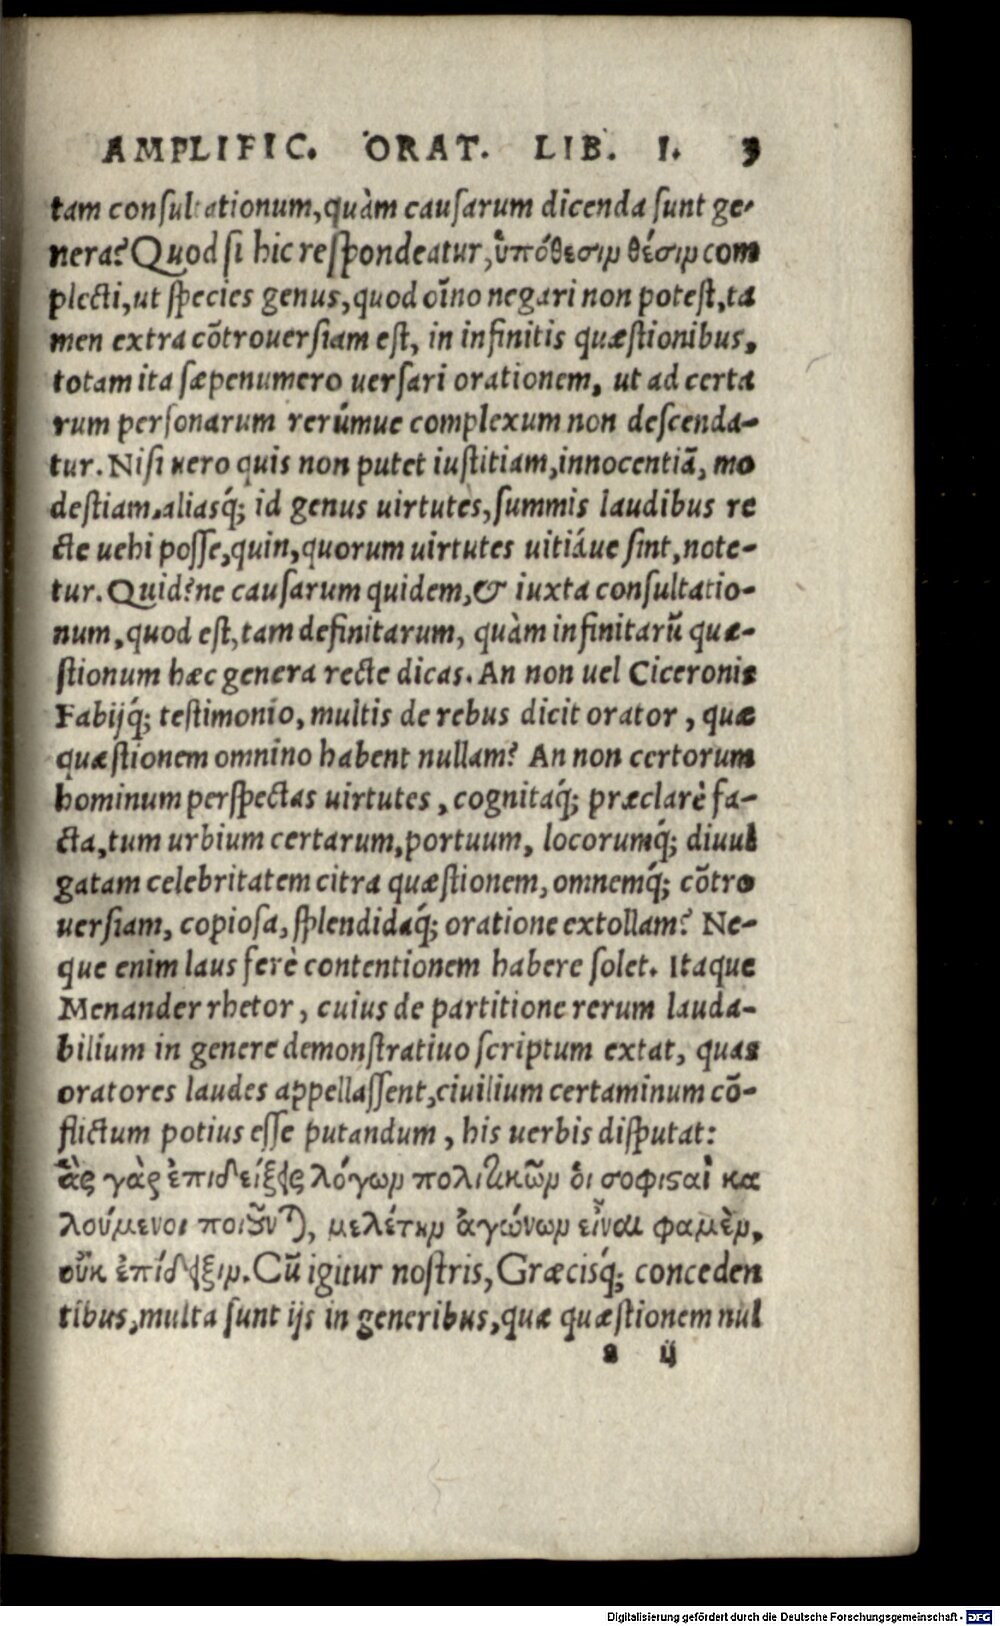 AMPLIFIC. ORAT. LIB. I. 3
tam consultationum, quàm causarum dicenda sunt ge-
nera? Quod si hic respondeatur, ὑπόθεσιμ θέσιμ com
plecti, ut species genus, quod oĩno negari non potest, ta
men extra cõtrouersiam est, in infinitis quæstionibus,
totam ita sæpenumero uersari orationem, ut ad certa
rum personarum rerúmue complexum non descenda-
tur. Nisi uero quis non putet iustitiam, innocentiã, mo
destiam, aliasq́; id genus uirtutes, summis laudibus re
cte uehi posse, quin, quorum uirtutes uitiáue sint, note-
tur. Quid? ne causarum quidem, & iuxta consultatio-
num, quod est, tam definitarum, quàm infinitarũ quæ-
stionum hæc genera recte dicas. An non uel Ciceronis
Fabijq́; testimonio, multis de rebus dicit orator, quæ
quæstionem omnino habent nullam? An non certorum
hominum perspectas uirtutes, cognitaq́; præclarè fa-
cta, tum urbium certarum, portuum, locorumq́; diuul
gatam celebritatem citra quæstionem, omnemq́; cõtro
uersiam, copiosa, splendidaq́; oratione extollam? Ne-
que enim laus ferè contentionem habere solet. Itaque
Menander rhetor, cuius de partitione rerum lauda-
bilium in genere demonstratiuo scriptum extat, quas
oratores laudes appellassent, ciuilium certaminum cõ-
flictum potius esse putandum, his uerbis disputat:
ἃς γὰρ ἐπιδείξεις λόγωμ πολιτικῶμ ὁι σοφιϛαὶ κα
λούμενοι ποιοῦνται, μελέτημ ἀγώνωμ εἶναι φαμὲμ,
οὐκ ἐπίδειξιμ. Cũ igitur nostris, Græcisq́; conceden
tibus, multa sunt ijs in generibus, quæ quæstionem nul
a ij
Digitalisierung gefördert durch die Deutsche Forschungsgemeinschaft - DFG